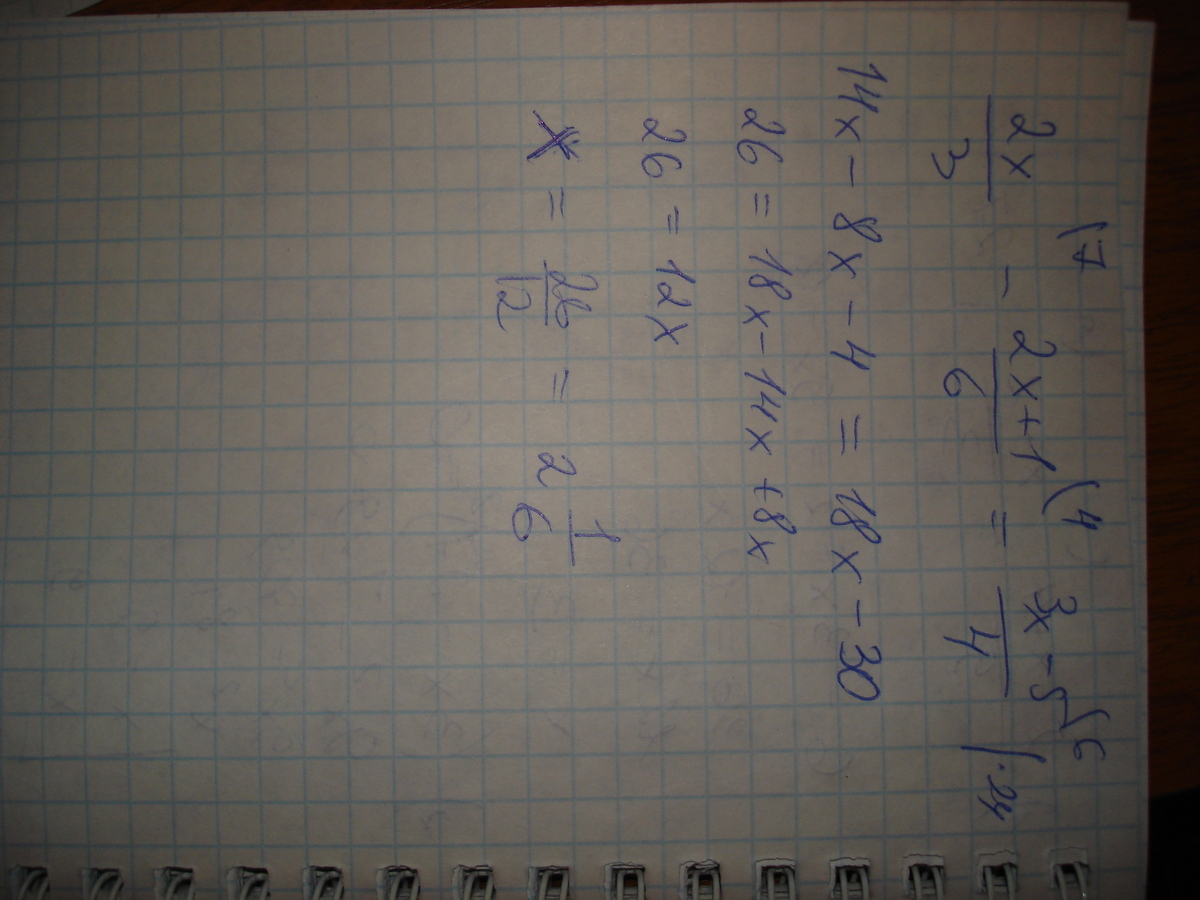 2x/3 (7 - 2x+1/6 (4 = 3x-5/4 (6 |·24
14x - 8x - 4 = 18x - 30
26 = 18x - 14x + 8x
26 = 12x
x = 26/12 = 2 1/6